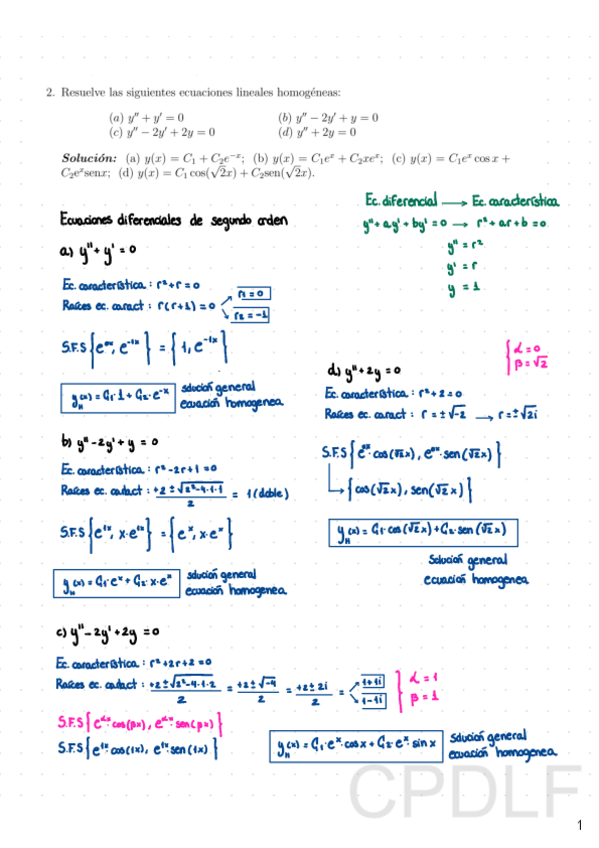 2. Resuelve las siguientes ecuaciones lineales homogéneas:
(a) y″ + y′ = 0 (b) y″ − 2y′ + y = 0
(c) y″ − 2y′ + 2y = 0 (d) y″ + 2y = 0
Solución: (a) y(x) = C₁ + C₂e⁻ˣ; (b) y(x) = C₁eˣ + C₂xeˣ; (c) y(x) = C₁eˣ cos x +
C₂eˣsenx; (d) y(x) = C₁ cos(√2x) + C₂sen(√2x).
Ec. diferencial → Ec. característica
y″+ay′+by′=0 → r²+ar+b=0
y″ = r²
y′ = r
y = 1
Ecuaciones diferenciales de segundo orden
a) y″+y′=0
Ec. característica: r²+r=0
Raíces ec. caract: r(r+1)=0 r₁=0
r₂=-1
S.F.S {e⁰ˣ, e⁻¹ˣ} = {1, e⁻¹ˣ}
y_H(x) = C₁·1 + C₂·e⁻ˣ solución general
ecuación homogenea
b) y″-2y′+y=0
Ec. característica: r²-2r+1=0
Raíces ec. caract: +2±√2²-4·1·1 / 2 = 1 (doble)
S.F.S {e¹ˣ, x·e¹ˣ} = {eˣ, x·eˣ}
y_H(x) = C₁·eˣ + C₂·x·eˣ solución general
ecuación homogenea
d) y″+2y=0 {α=0
β=√2
Ec. característica: r²+2=0
Raíces ec. caract: r=±√-2 → r=±√2i
S.F.S {e⁰ˣ·cos(√2x), e⁰ˣ·sen(√2x)}
→ {cos(√2x), sen(√2x)}
y_H(x) = C₁·cos(√2x)+C₂·sen(√2x)
Solución general
ecuación homogenea
c) y″-2y′+2y=0
Ec. característica: r²+2r+2=0
Raíces ec. caract: +2±√2²-4·1·2 / 2 = +2±√-4 / 2 = +2±2i / 2 = 1+1i } α=1
1-1i β=1
S.F.S {eᵅˣ·cos(βx), eᵅˣ·sen(βx)}
S.F.S {e¹ˣ·cos(1x), e¹ˣ·sen(1x)}
y_H(x) = C₁·eˣ·cosx + C₂·eˣ·sinx Solución general
ecuación homogenea
CPDLF
1